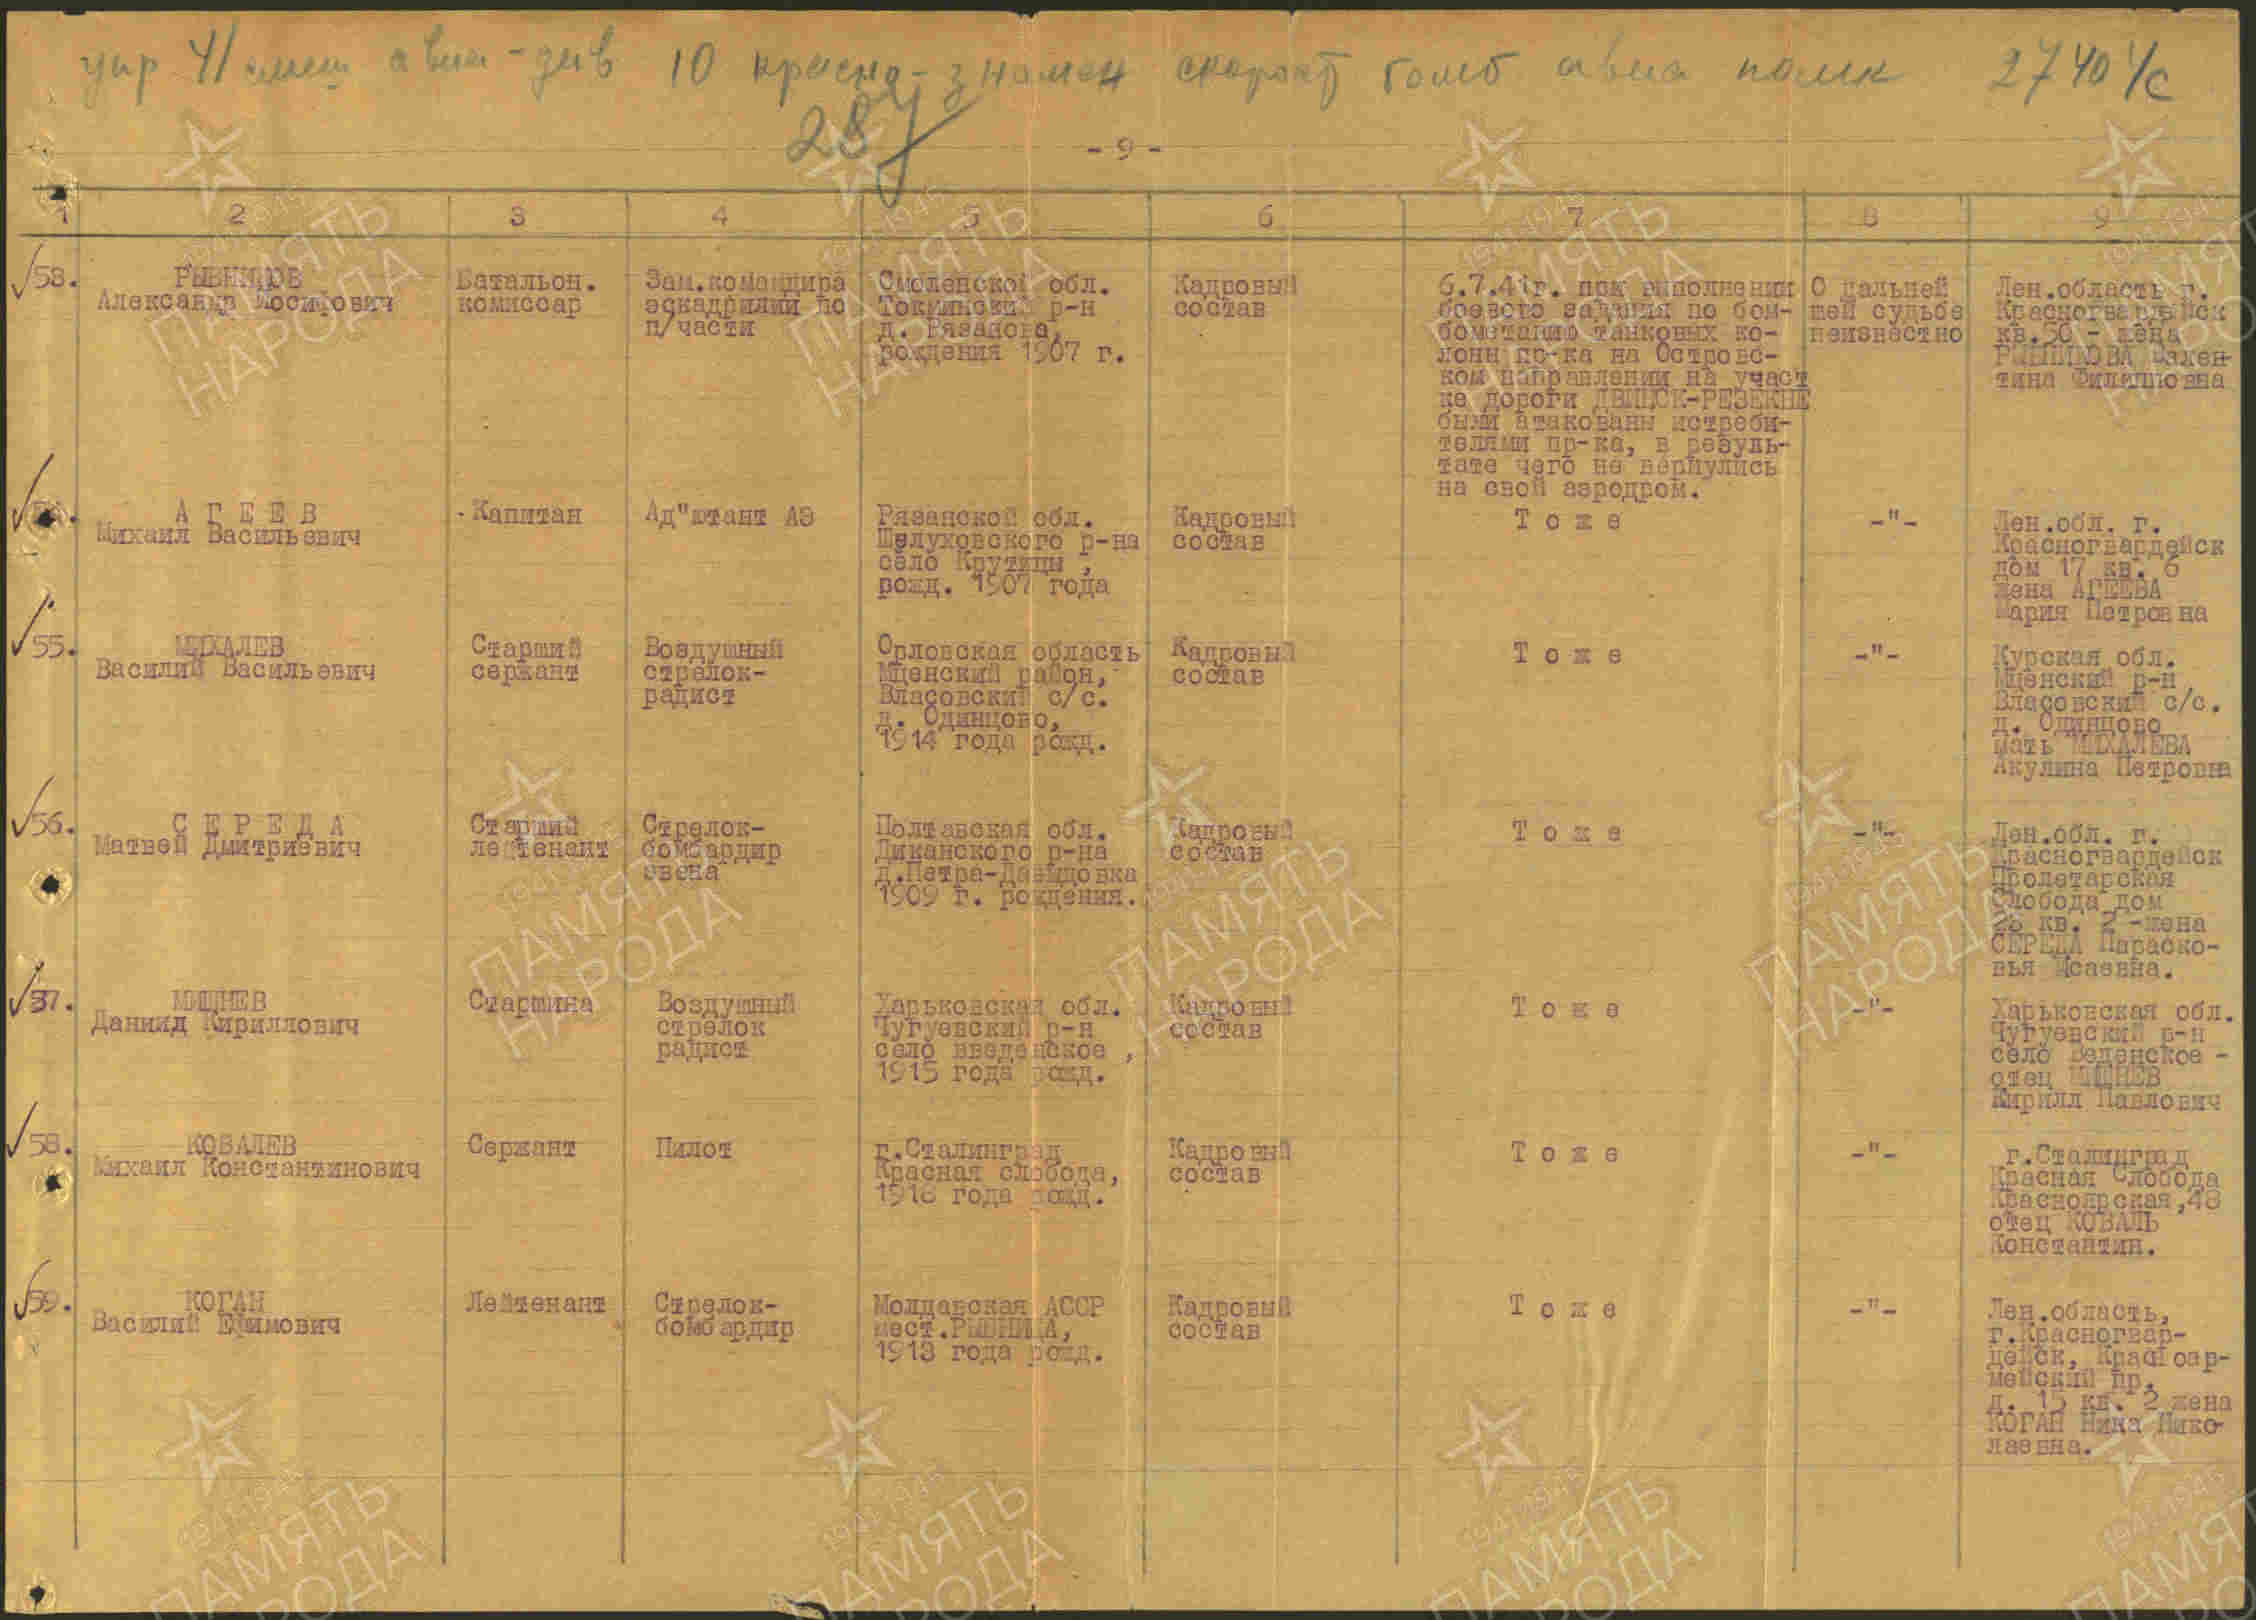 упр 41 смеш авиа-див 10 красно-знамен скорост бомб авиа полк 2740 с/с
287
- 9 -
1 2 3 4 5 6 7 8 9
53.
РЫБНИКОВ
Александр Иосифович
Батальон.
комиссар
Зам.командира
эскадрилии по
п/части
Смоленской обл.
рождения 1907 г.
Кадровый
состав
6.7.41г. при выполнении
боевого задания по бом-
бометанию танковых ко-
лонн пр-ка на Островс-
ком направлении на участ
ке дороги ДВИНСК-РЕЗЕКНЕ
были атакованы истреби-
телями пр-ка, в резуль-
тате чего не вернулись
на свой аэродром.
О дальней
шей судьбе
неизвестно
Лен.область г.
Красногвардейск
кв.50 - жена
РЫБНИКОВА Вален-
тина Филипповна
А Г Е Е В
Михаил Васильевич
Капитан
Ад"ютант АЭ
Рязанской обл.
Шелуховского р-на
село Крутицы ,
рожд. 1907 года
Кадровый
состав
Т о ж е
-"-
Лен.обл. г.
Красногвардейск
дом 17 кв. 6
жена АГЕЕВА
Мария Петровна
55.
МИХАЛЕВ
Василий Васильевич
Старший
сержант
Воздушный
стрелок-
радист
Орловская область
Мценский район,
Власовский с/с.
д. Одинцово,
1914 года рожд.
Кадровый
состав
Т о ж е
-"-
Курская обл.
Мценский р-н
Власовский с/с.
д. Одинцово
мать МИХАЛЕВА
Акулина Петровна
56.
С Е Р Е Д А
Матвей Дмитриевич
Старший
лейтенант
Стрелок-
бомбардир
звена
Полтавская обл.
Диканского р-на
д.Петра-Давыдовка
1909 г. рождения.
Кадровый
состав
Т о ж е
-"-
Лен.обл. г.
Красногвардейск
Пролетарская
Слобода дом
кв. 2 -жена
СЕРЕДА Параско-
вья Исаевна.
57.
МИШНЕВ
Даниид Кириллович
Старшина
Воздушный
стрелок
радист
Харьковская обл.
Чугуевский р-н
село введенское ,
1915 года рожд.
Кадровый
состав
Т о ж е
-"-
Харьковская обл.
Чугуевский р-н
село Веденское -
отец МИШНЕВ
Кирилл Павлович
58.
КОВАЛЕВ
Михаил Константинович
Сержант
Пилот
г.Сталинград
Красная слобода,
1918 года рожд.
Кадровый
состав
Т о ж е
-"-
г.Сталинград
Красная Слобода
Красноярская,48
отец КОВАЛЬ
Константин.
59.
КОГАН
Василий Ефимович
Лейтенант
Стрелок-
бомбардир
Молдавская АССР
мест.РЫБНИЦА,
1913 года рожд.
Кадровый
состав
Т о ж е
-"-
Лен.область,
г.Красногвар-
дейск, Красноар-
мейский пр.
д. 15 кв. 2 жена
КОГАН Нина Нико-
лаевна.
1941-1945
ПАМЯТЬ
НАРОДА